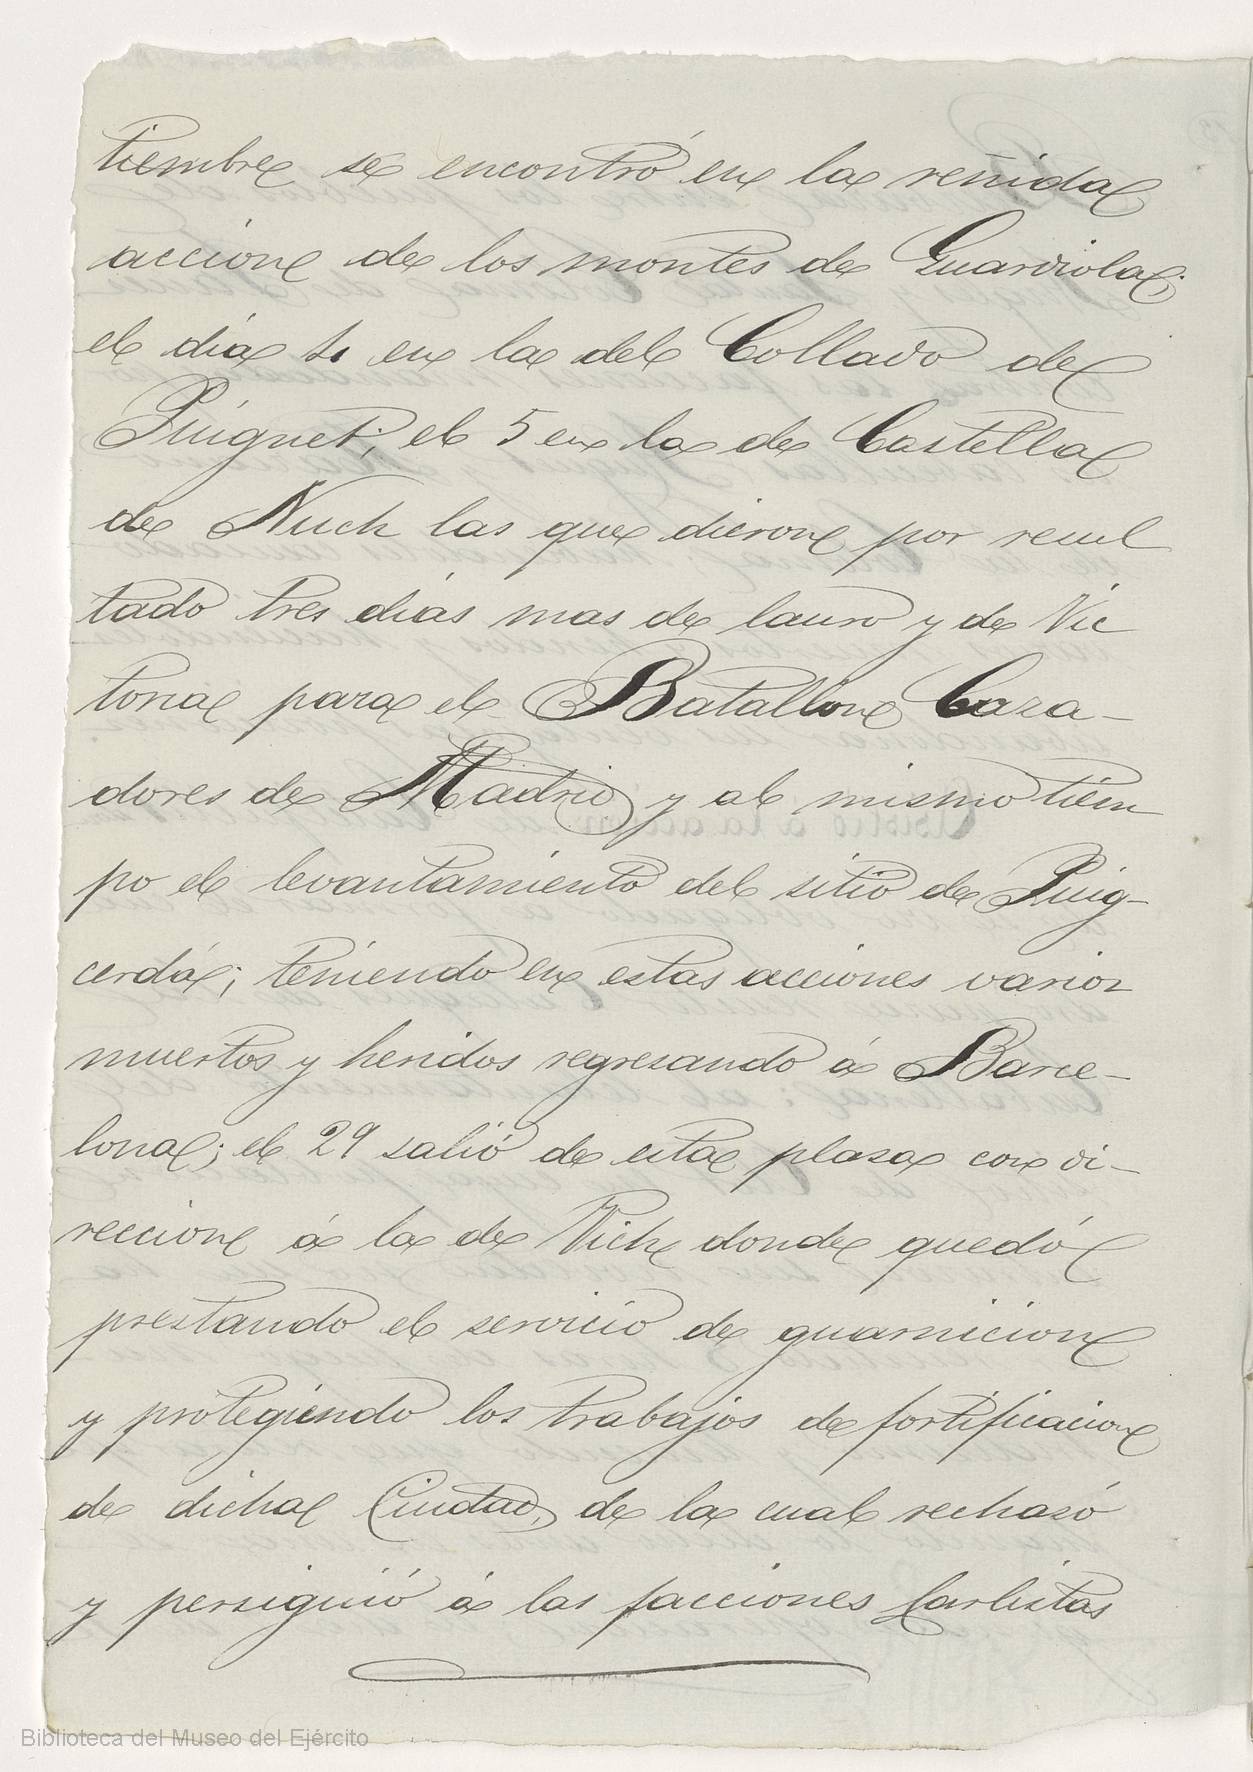 tiembre se encontró en la reñida
accion de los montes de Guardiola;
el dia 4 en la del Collado de
Puignet; el 5 en la de Castella
de Nuch las que dieron por resul
tado tres dias mas de lauro y de Vic
toria para el Batallon Caza-
dores de Madrid y al mismo tiem
po el levantamiento del sitio de Puig-
cerdá; teniendo en estas acciones varios
muertos y heridos regresando á Barce-
lona; el 29 salió de esta plasa con di-
reccion á la de Vich donde quedó
prestando el servicio de guarnicion
y protegiendo los trabajos de fortificacion
de dicha Ciudad, de la cual rechasó
y persiguió á las facciones Carlistas
Biblioteca del Museo del Ejército